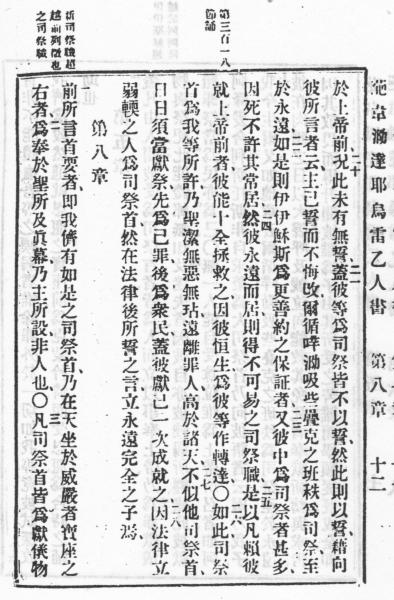 葩韋泐達耶烏雷乙人書 第八章 十二
第三百一八
節誦
於上帝前況此未有無誓蓋彼等為司祭皆不以誓然此則以誓藉向
彼所言者云主已誓而不悔改爾循哶泐吸些之班秩為司祭至
於永遠如是則伊伊穌斯為更善約之保証者又彼中為司祭者甚多
因死不許其常居然彼永遠而居則得不可易之司祭職是以凡賴彼
就上帝前者彼能十全拯救之因彼恒生為彼等作轉達〇如此司祭
首為我等所許乃聖潔無惡無玷遠離罪人高於諸天不似他司祭首
日日須當獻祭先為己罪後為衆民蓋彼獻己一次成就之因法律立
弱輭之人為司祭首然在法律後所誓之言立永遠完全之子為
第八章
新司祭職超
越前列徵也
之司祭職
前所言首要者即我儕有如是之司祭首乃在天坐於威嚴者寶座之
右者為奉於聖所及真幕乃主所設非人也〇凡司祭首皆為獻儀物